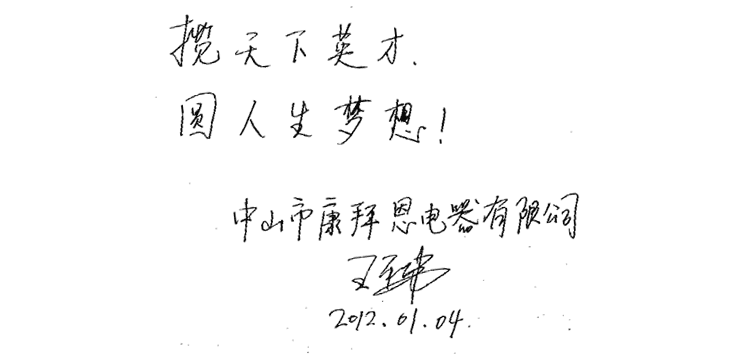 揽天下英才.
圆人生梦想!
中山市康拜恩电器有限公司
王玮
2012.01.04.